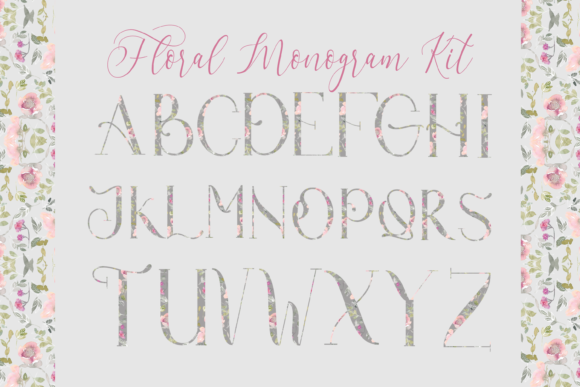 Floral Monogram Kit
ABCDEFGHI
JKLMNOPQRS
TUVWXYZ